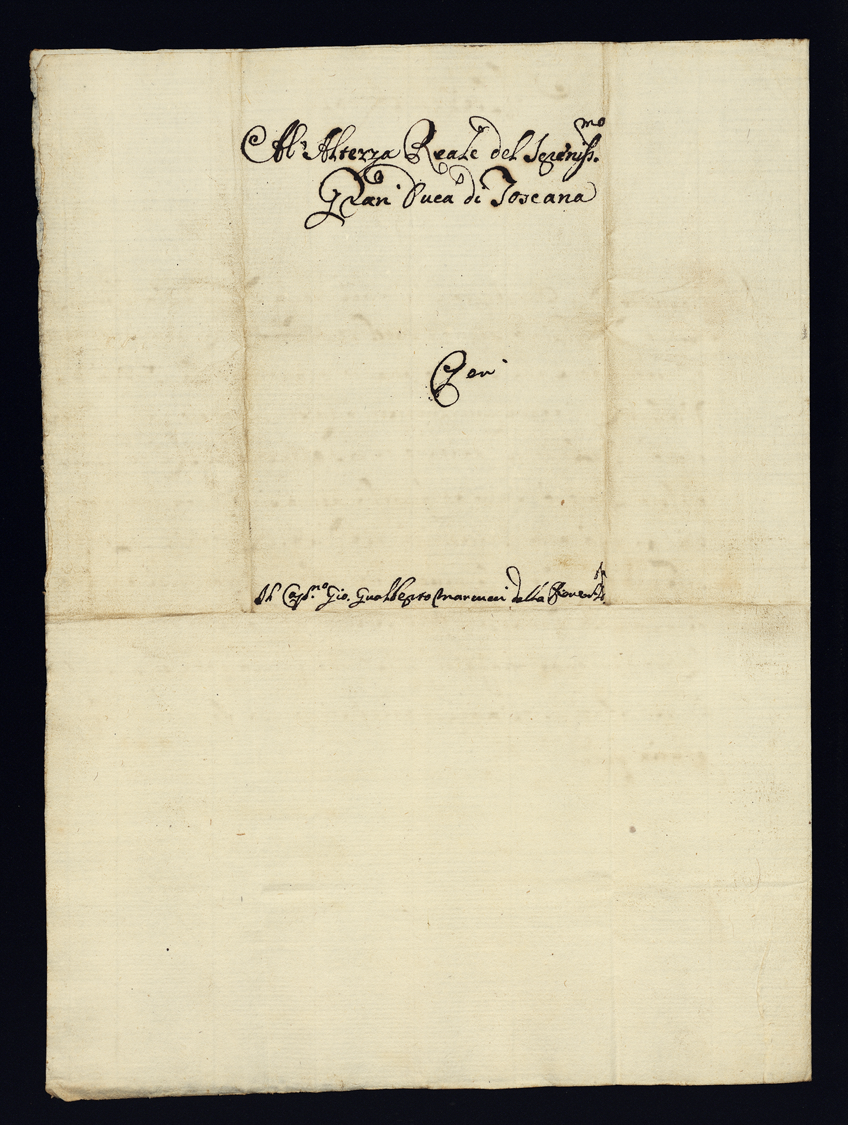 Al' Altezza Reale del Sereniss.mo
Gran' Duca di Toscana
Per
Il Cap.no Gio. Gualberto della